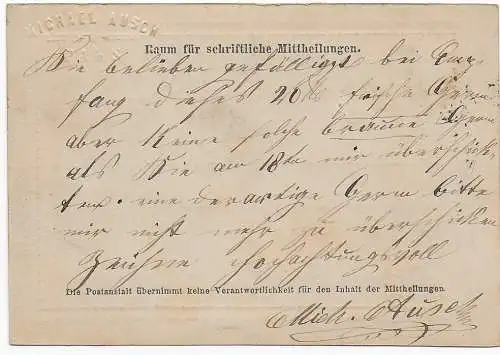 MICHAEL AUSCH
Raum für schriftliche Mittheilungen.
Sie belieben gefälligst bei Emp-
fang dieses 20 frische Germ
aber keine solche braune Germ
als Sie am 18ten mir überschick-
ten. eine derartige Germ bitte
mir nicht mehr zu überschicken
Zeichne hochachtungsvoll
Die Postanstalt übernimmt keine Verantwortlichkeit für den Inhalt der Mittheilungen.
Mich. Ausch